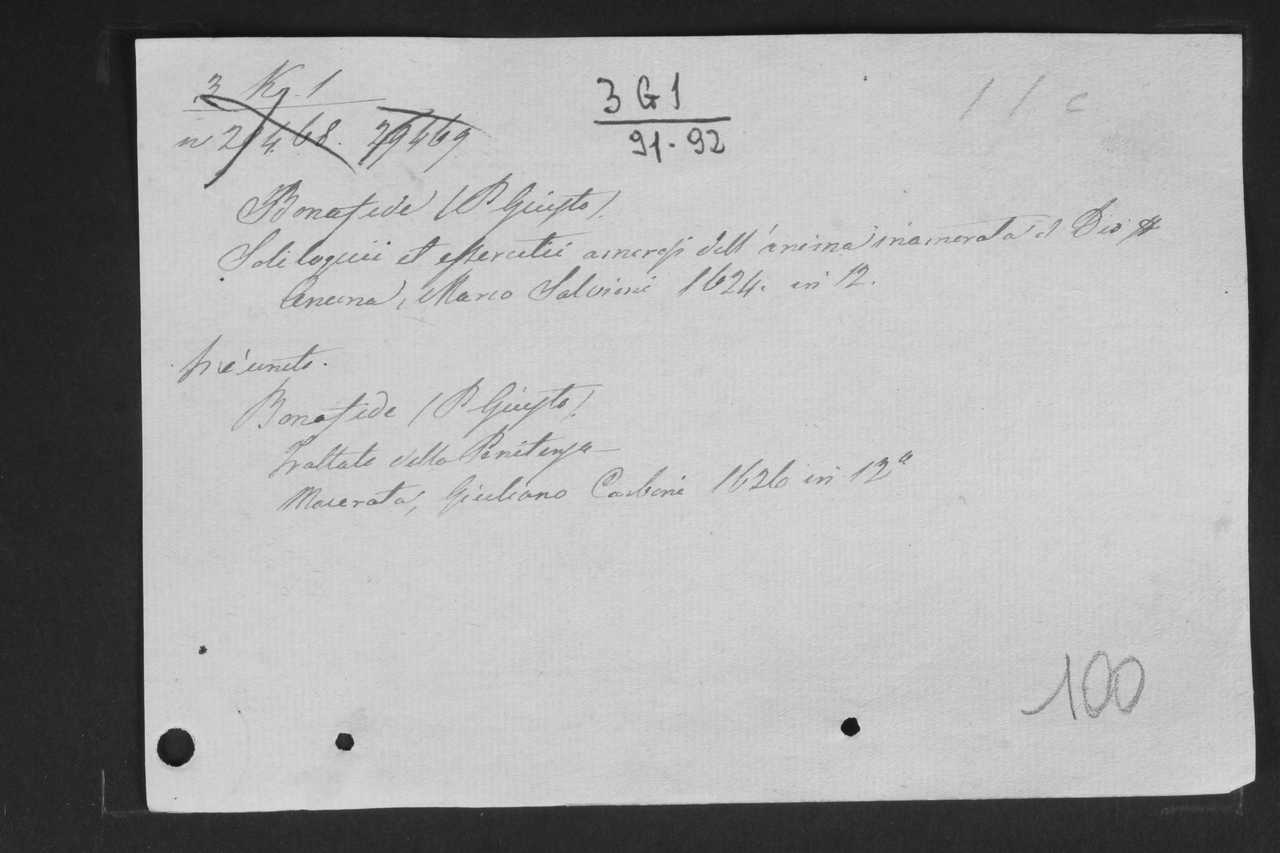 3 K. 1
3 G 1
n 29468. 29469
91-92
Bonafede (P Giusto).
Soliloquii et essercitii amorosi dell'anima inamorata di Dio &
Ancona, Marco Salvioni 1624. in 12.
Vi è unito.
Bonafede (P Giusto).
Trattato della Penitenza
Macerata, Giuliano Carboni 1626 in 12°
100